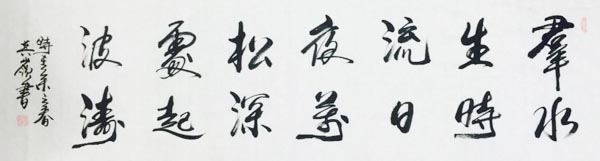 羣水
生時
流日
夜萬
松深
處起
波濤
時未之春
書